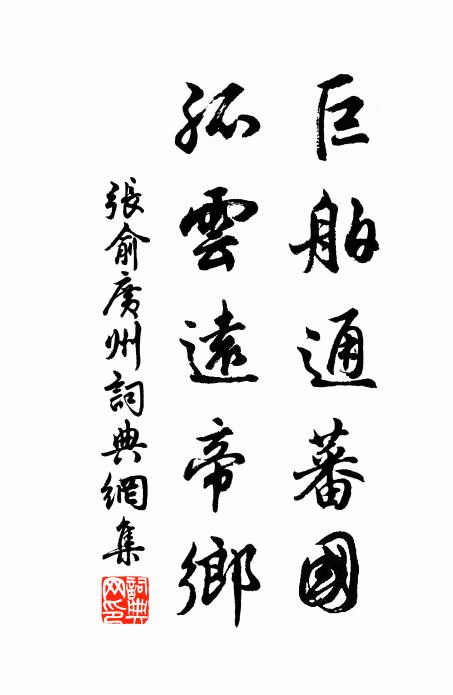 巨舶通蕃國
孤雲遠帝鄉
張俞廣州詞典網集
詞典網印